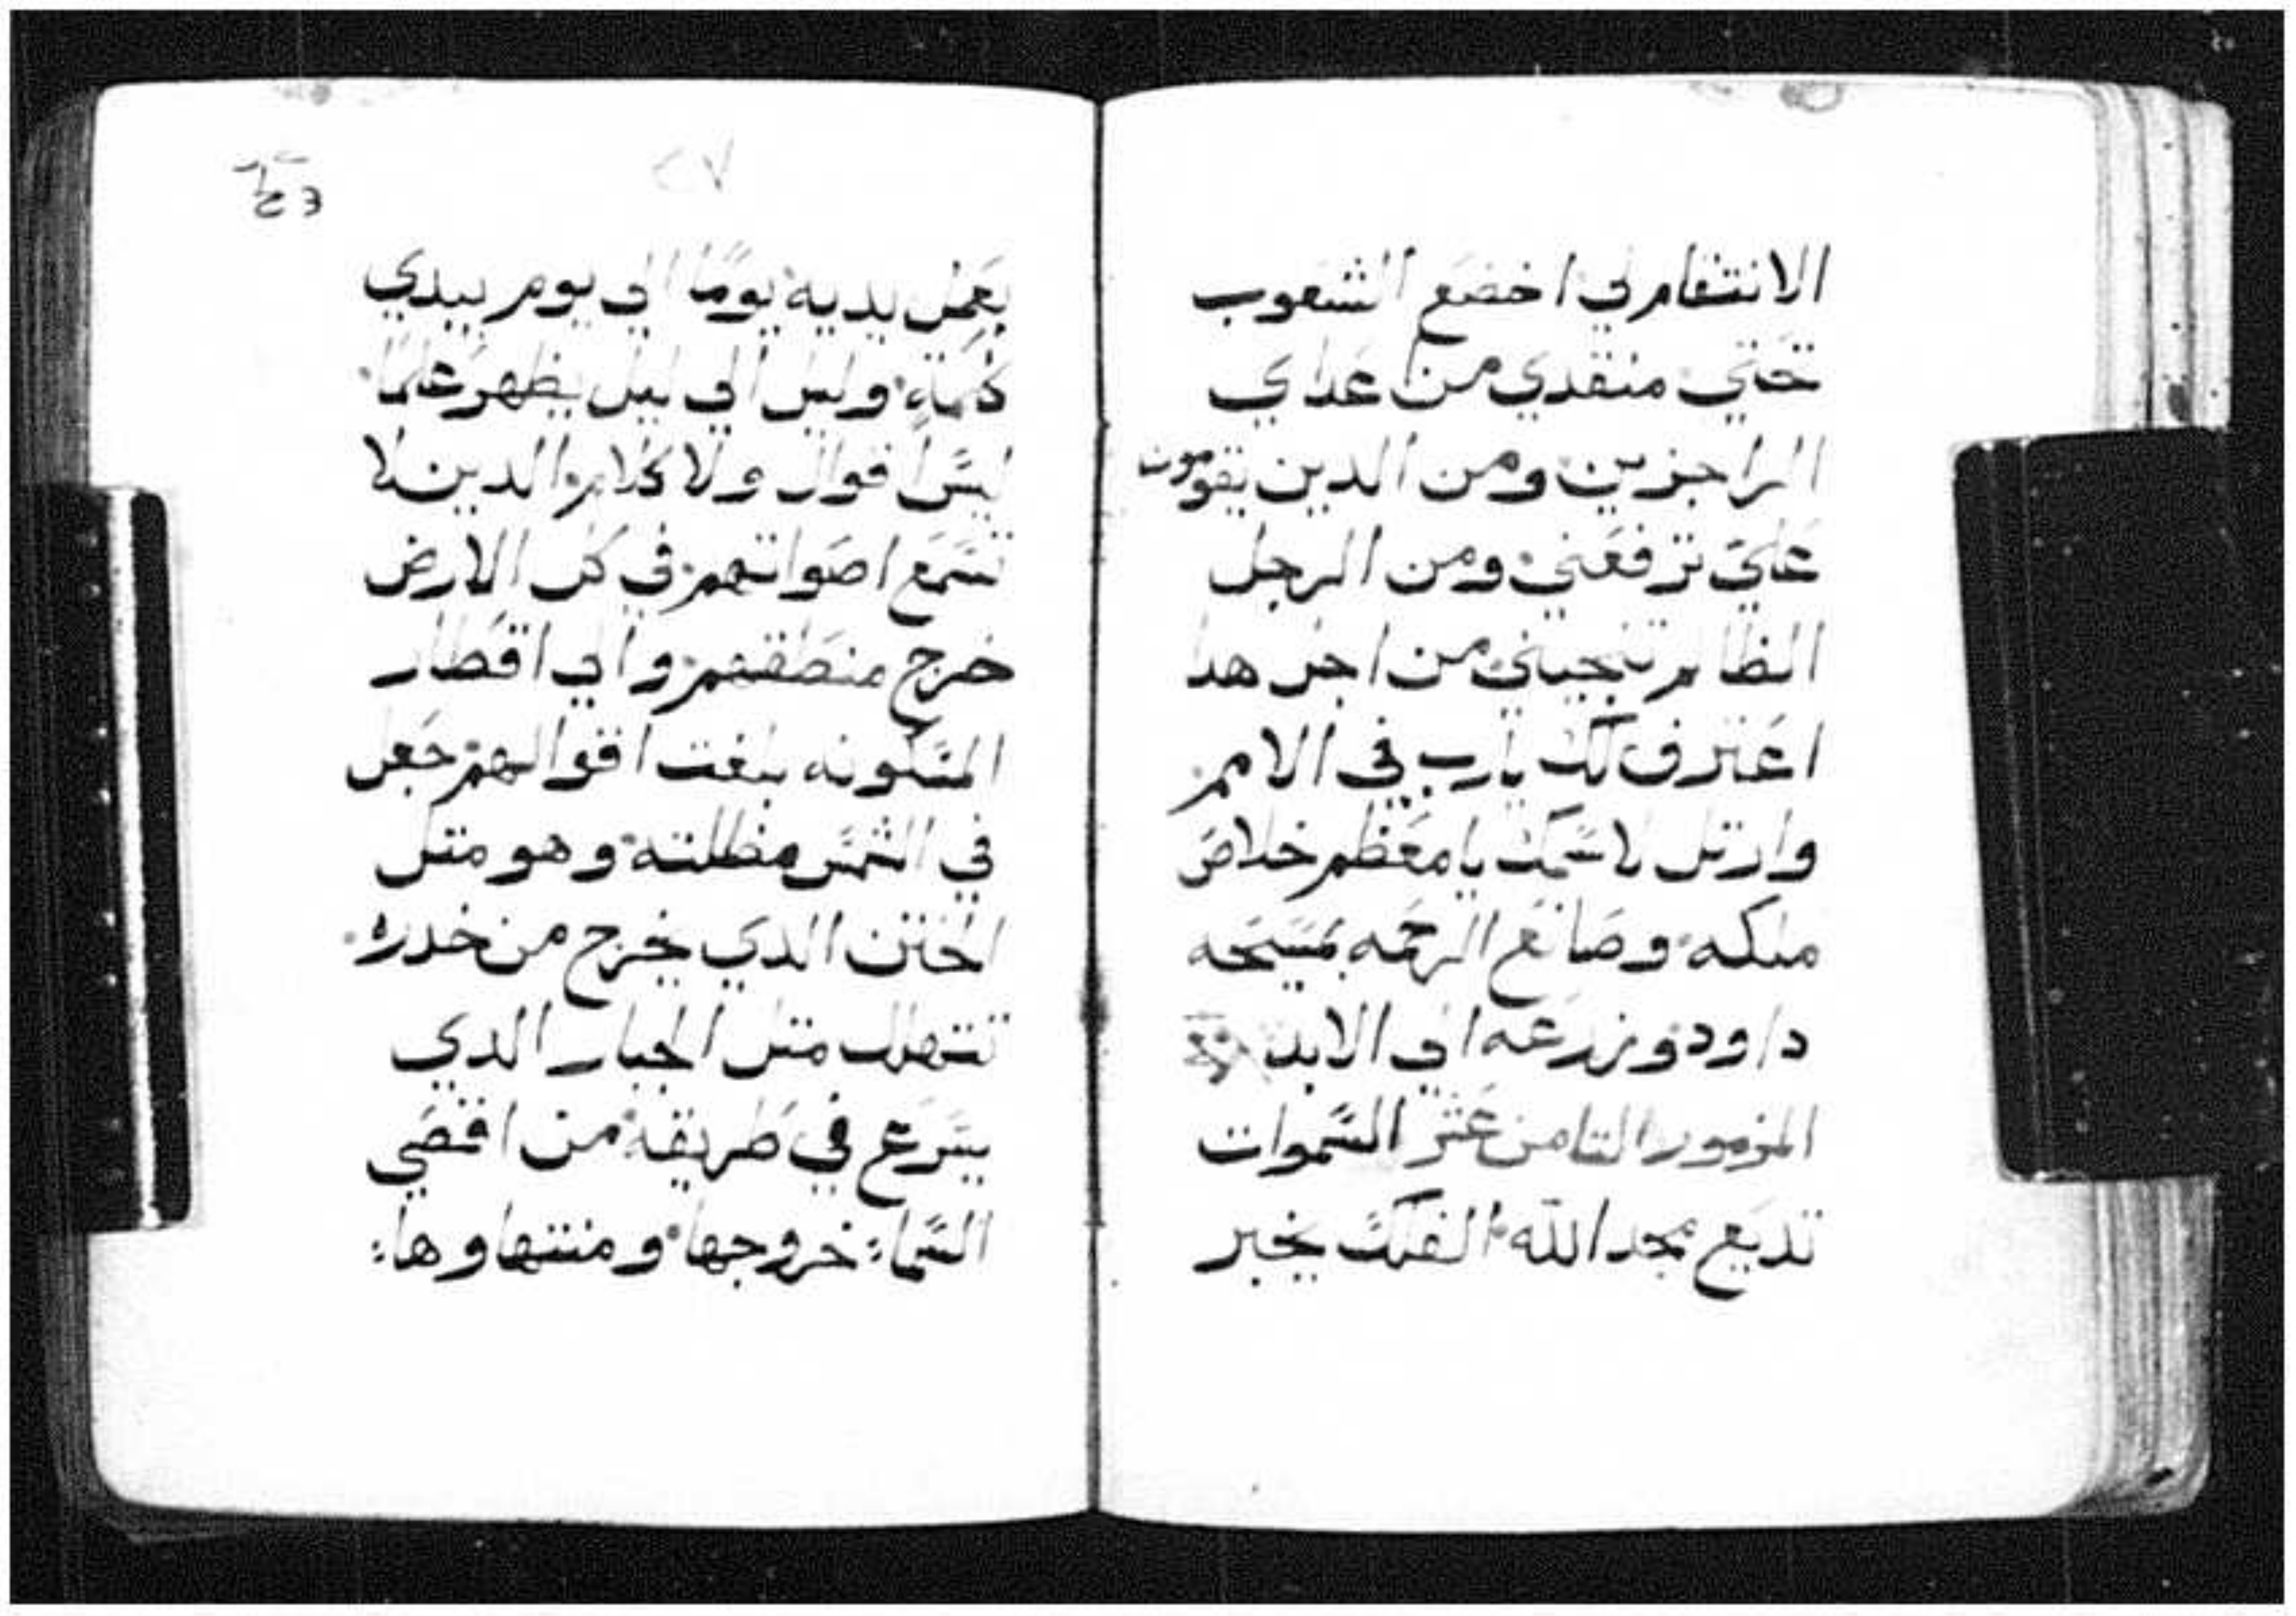 الانتقام لي اخضع الشعوب
تحتي منقدي من اعداي
الراجزين ومن الدين يقومون
علي ترفعني ومن الرجل
الظالم تنجيني من اجل هدا
اعترف لك يارب في الامم
وارتل لاسمك يا معظم خلاص
ملكه وصانع الرحمه بمسيحه
داود وزرعه الي الابد
المزمور التامن عشر السموات
تديع مجد الله الفلك يخبر
٢٧
بعمل يديه يومًا الي يوم يبدي
كلمة وليل الي ليل يظهر علمًا
ليس اقوال ولا كلام الدين لا
تسمع اصواتهم في كل الارض
خرج منطقهم والي اقطار
المسكونه بلغت اقوالهم جعل
في الشمس مظلته وهو متل
الختن الدي يخرج من خدره
تتهلل متل الجبار الدي
يسرع في طريقه من اقصي
السما خروجها ومنتهاوها